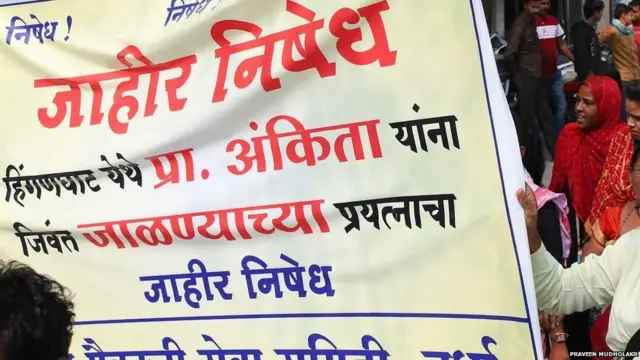 निषेध !
निषेध !
जाहीर निषेध
हिंगणघाट येथे प्रा. अंकिता यांना
जिवंत जाळण्याच्या प्रयत्नाचा
जाहीर निषेध
सेवा समिती
PRAVEEN MUDHOLAKR